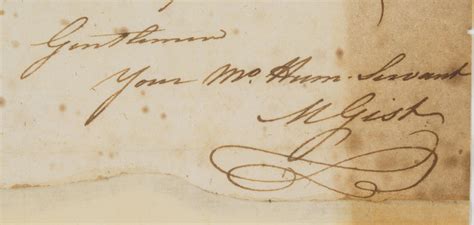 Gentlemen
Your Mo. Hum. Servant
M Gist